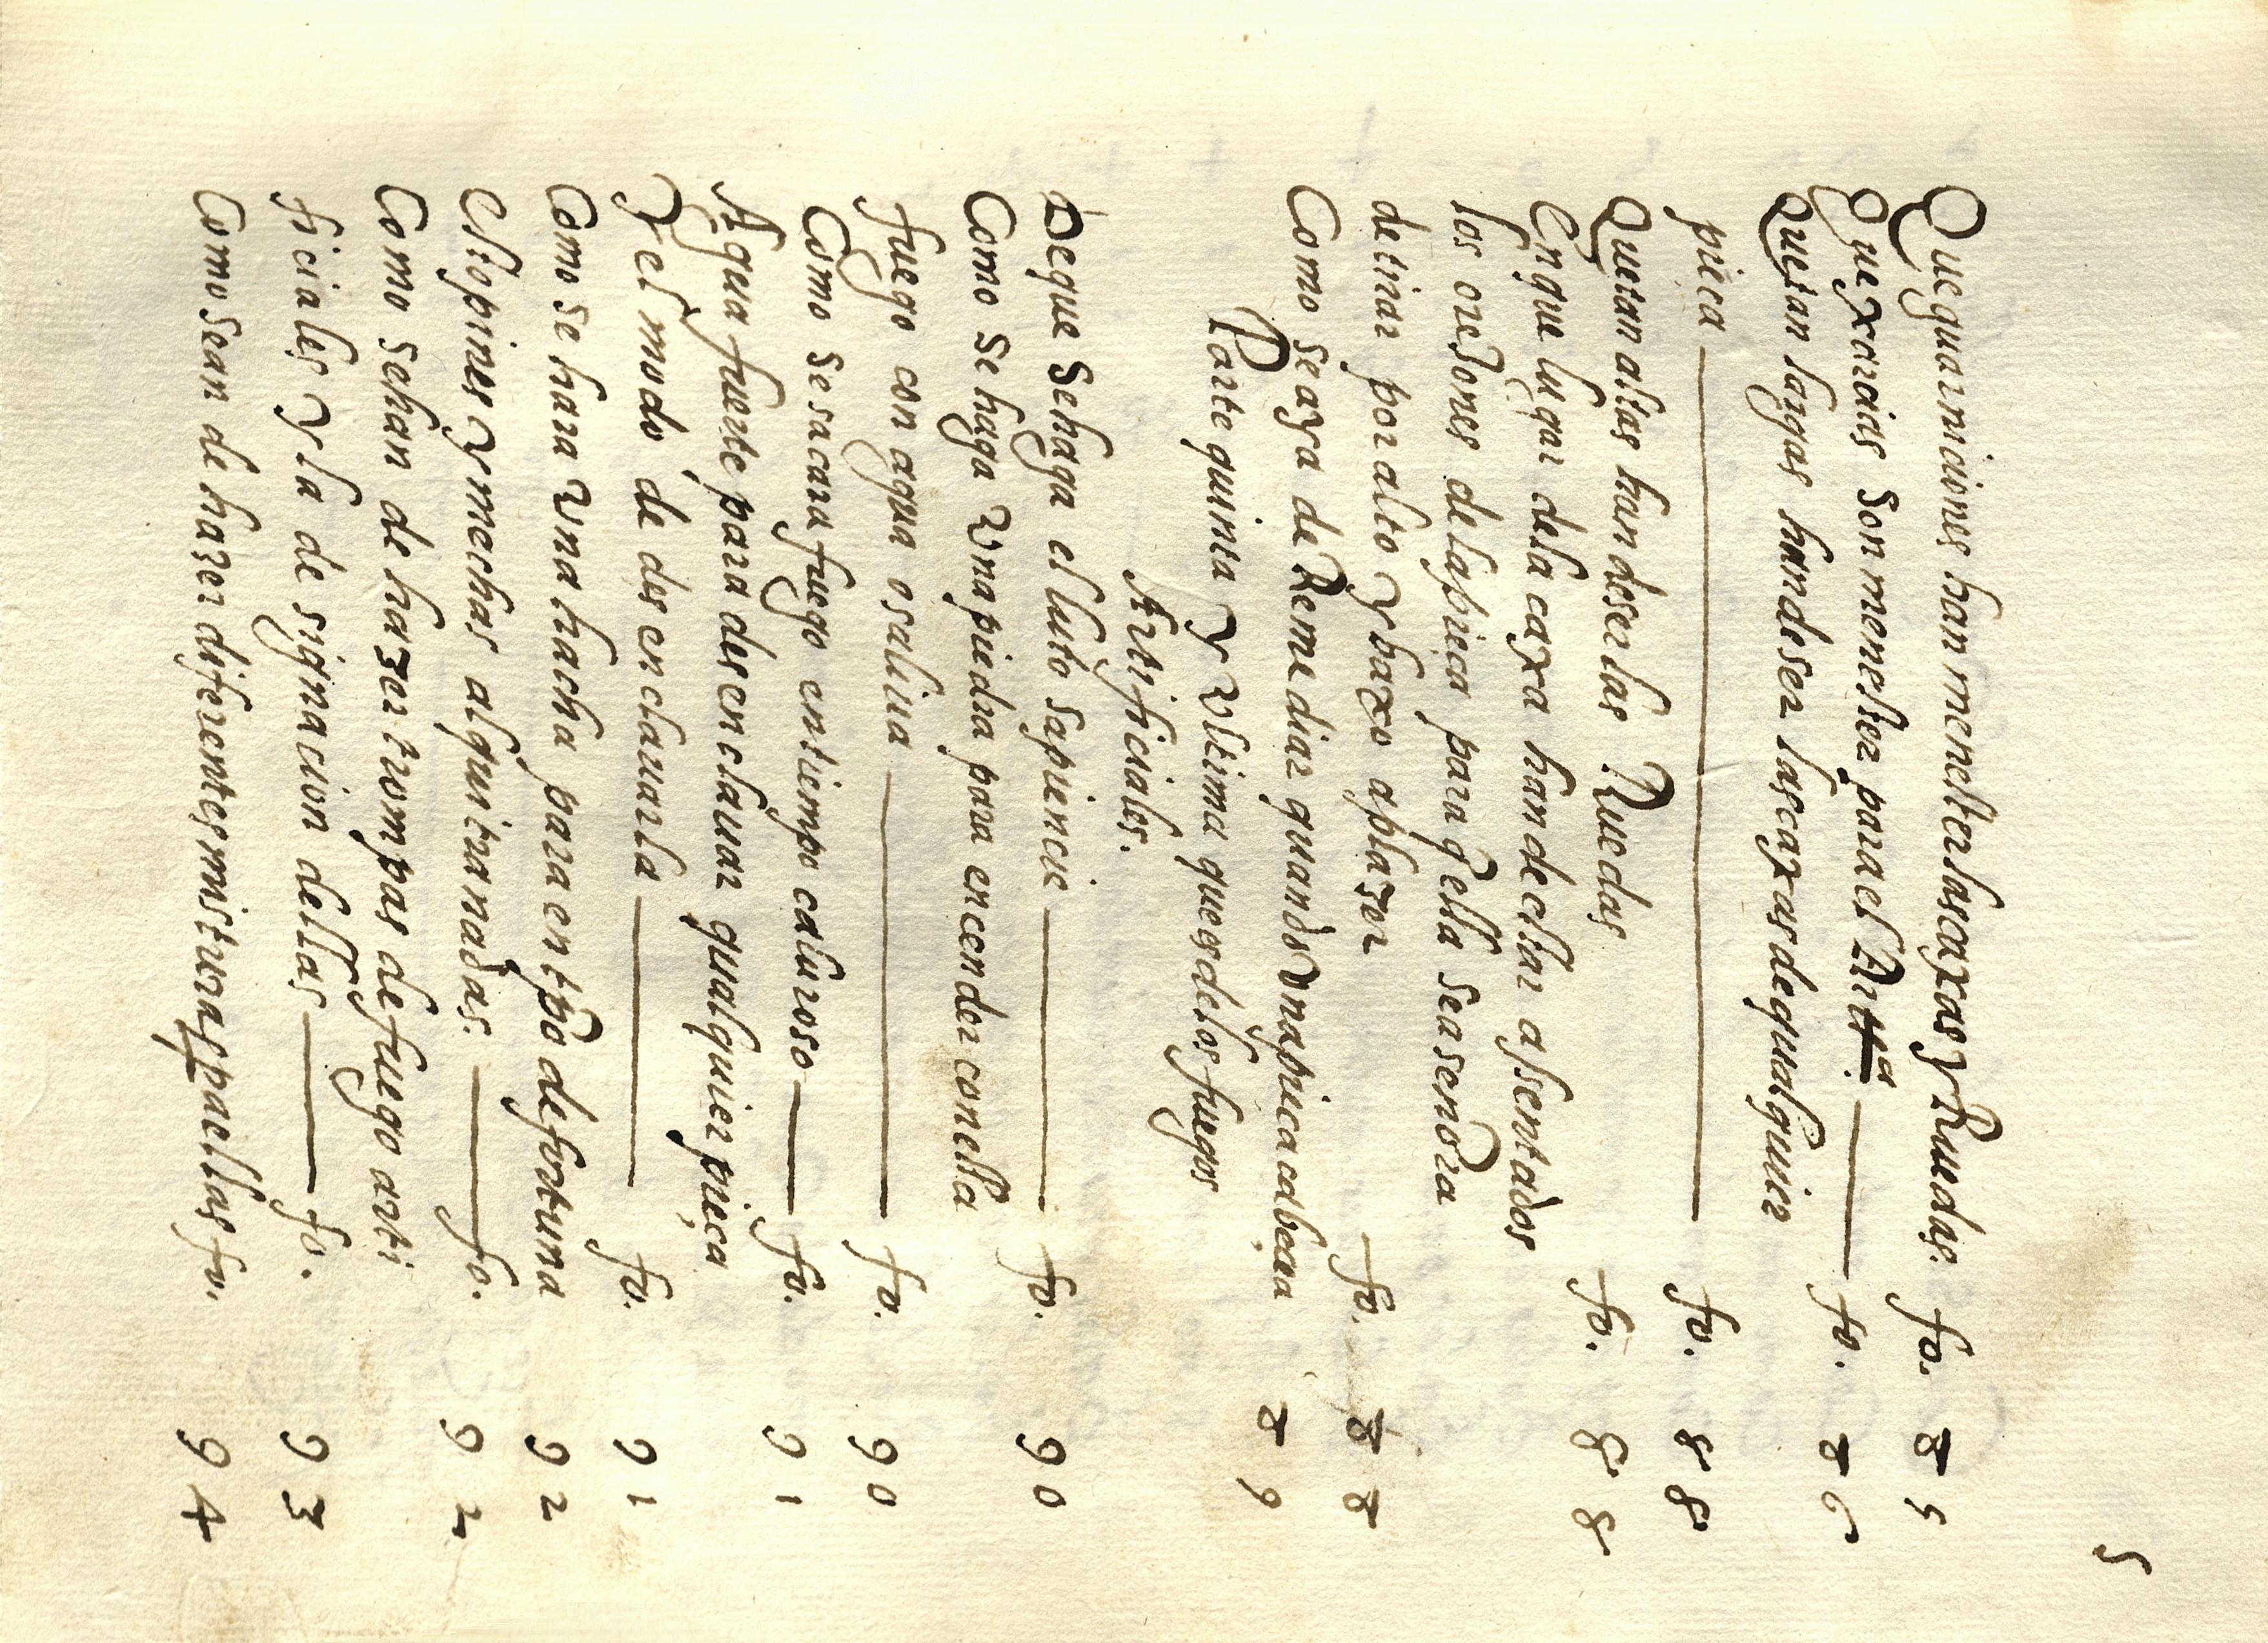 5
Que guarniciones han menester las caxas y Ruedas. fo. 85
Que xarcias son menester para el Artª. fo. 86
Que tan largas han de ser las caxas de qualquier
pieca fo. 88
Que tan altas han de ser las Ruedas fo. 88
En que lugar de la caxa han de estar assentados
los oregones de la pieca para q̃ ella sea señora
de tirar por alto y baxo a plazer fo. 88
Como se aya de Remediar quando una pieca cabecea 89
Parte quinta y Ultima que es de los fuegos
Artificiales.
De que se haga el luto sapiencie fo. 90
Como se haga una piedra para encender con ella
fuego con agua o saliua fo. 90
Como se sacara fuego en tiempo caluroso fo. 91
Agua fuerte para desenclauar qualquier pieça
y el modo de desenclauarla fo. 91
Como se hara una hacha para en tpõ de fortuna 92
Estopines y mechas alquitranadas. fo. 92
Como se han de hazer trompas de fuego arti
ficiales y la designacion dellas fo. 93
Como se an de hazer diferentes misturas pa ellas fo. 94